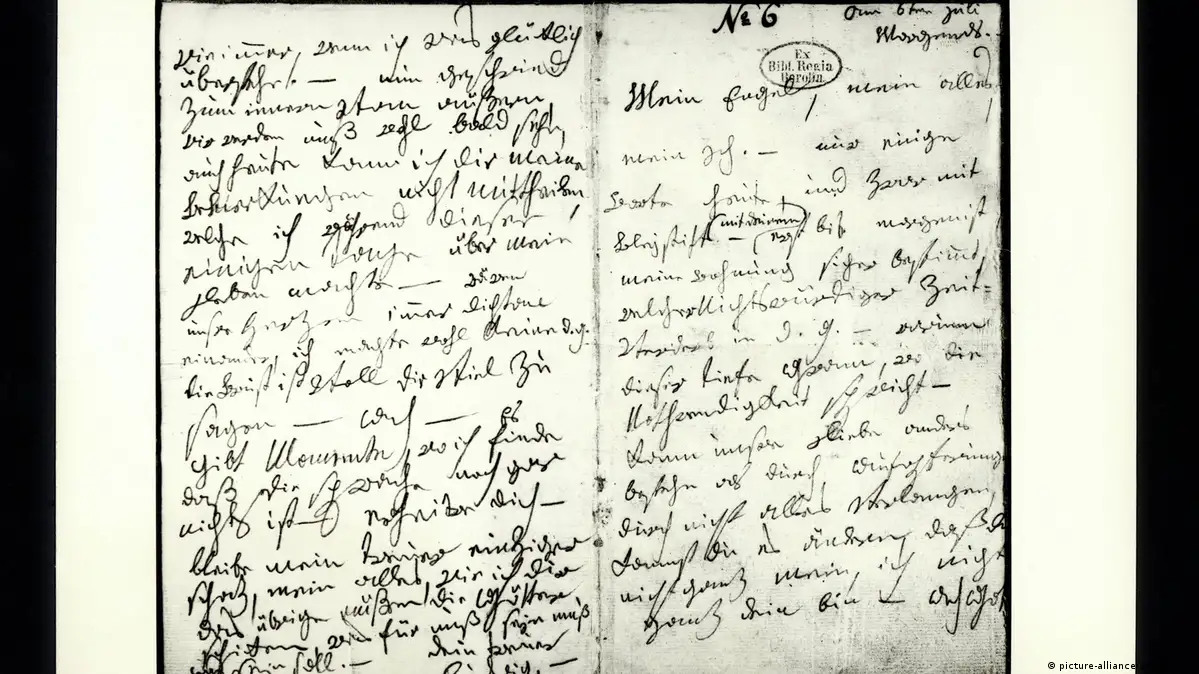 wie immer, wenn ich was glücklich
überstehe. — nun geschwind
zum innern vom aüßern,
wir werden unß wohl bald sehn,
auch heute kann ich dir meine
Bemerkungen nicht mittheilen,
welche ich während dieser
einigen Tage über mein
Leben machte — wären
unsre Herzen immer dicht an
einander, ich machte wohl keine d.g.
die Brust ist voll dir viel zu
sagen — Ach — Es
gibt Momente, wo ich finde
daß die sprache noch gar
nichts ist — erheitre dich —
bleibe mein treuer einziger
schatz, mein alles, wie ich dir
das übrige müßen die Götter
schicken, was für unß sein muß
und sein soll. —
dein treuer
ludwig. —
№ 6
am 6ten Juli
Morgends. —
Ex
Bibl. Regia
Berolin.
Mein Engel, mein alles,
mein Ich. — nur einige
Worte heute, und zwar mit
Bleystift — (mit deinem)
erst bis morgen ist
meine wohnung sicher bestimmt,
welcher Nichtswürdiger Zeit-
Verderb in d. g. — warum
dieser tiefe Gram, wo die
Nothwendigkeit spricht —
Kann unsre Liebe anders
bestehn als durch Aufopferungen,
durch nicht alles verlangen,
kannst du es ändern, daß du
nicht ganz mein, ich nicht
ganz dein bin — Ach Gott
© picture-alliance